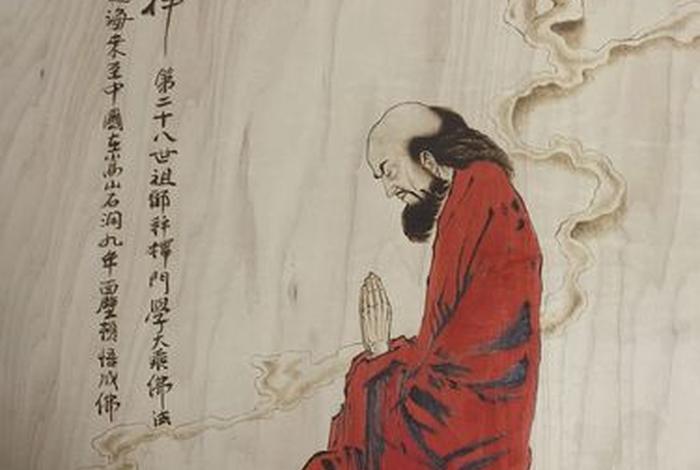 第二十八世祖師釋禪門學大乘佛法
海来至中國在嵩山石洞九年面壁頓悟成佛